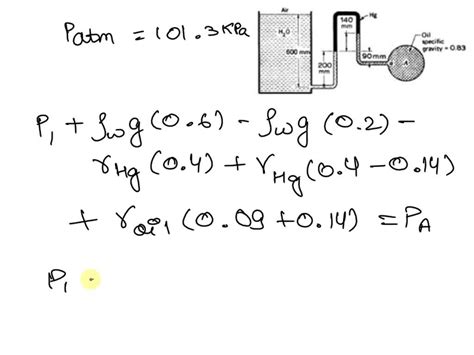 Patm = 101.3 KPa
Air
H₂O
600 mm
200
mm
140
mm
Hg
90 mm
Oil
specific
gravity = 0.83
A
P₁ + ρwg(0.6) - ρwg(0.2) -
γHg(0.4) + γHg(0.4-0.14)
+ γoil(0.09+0.14) = PA
P₁